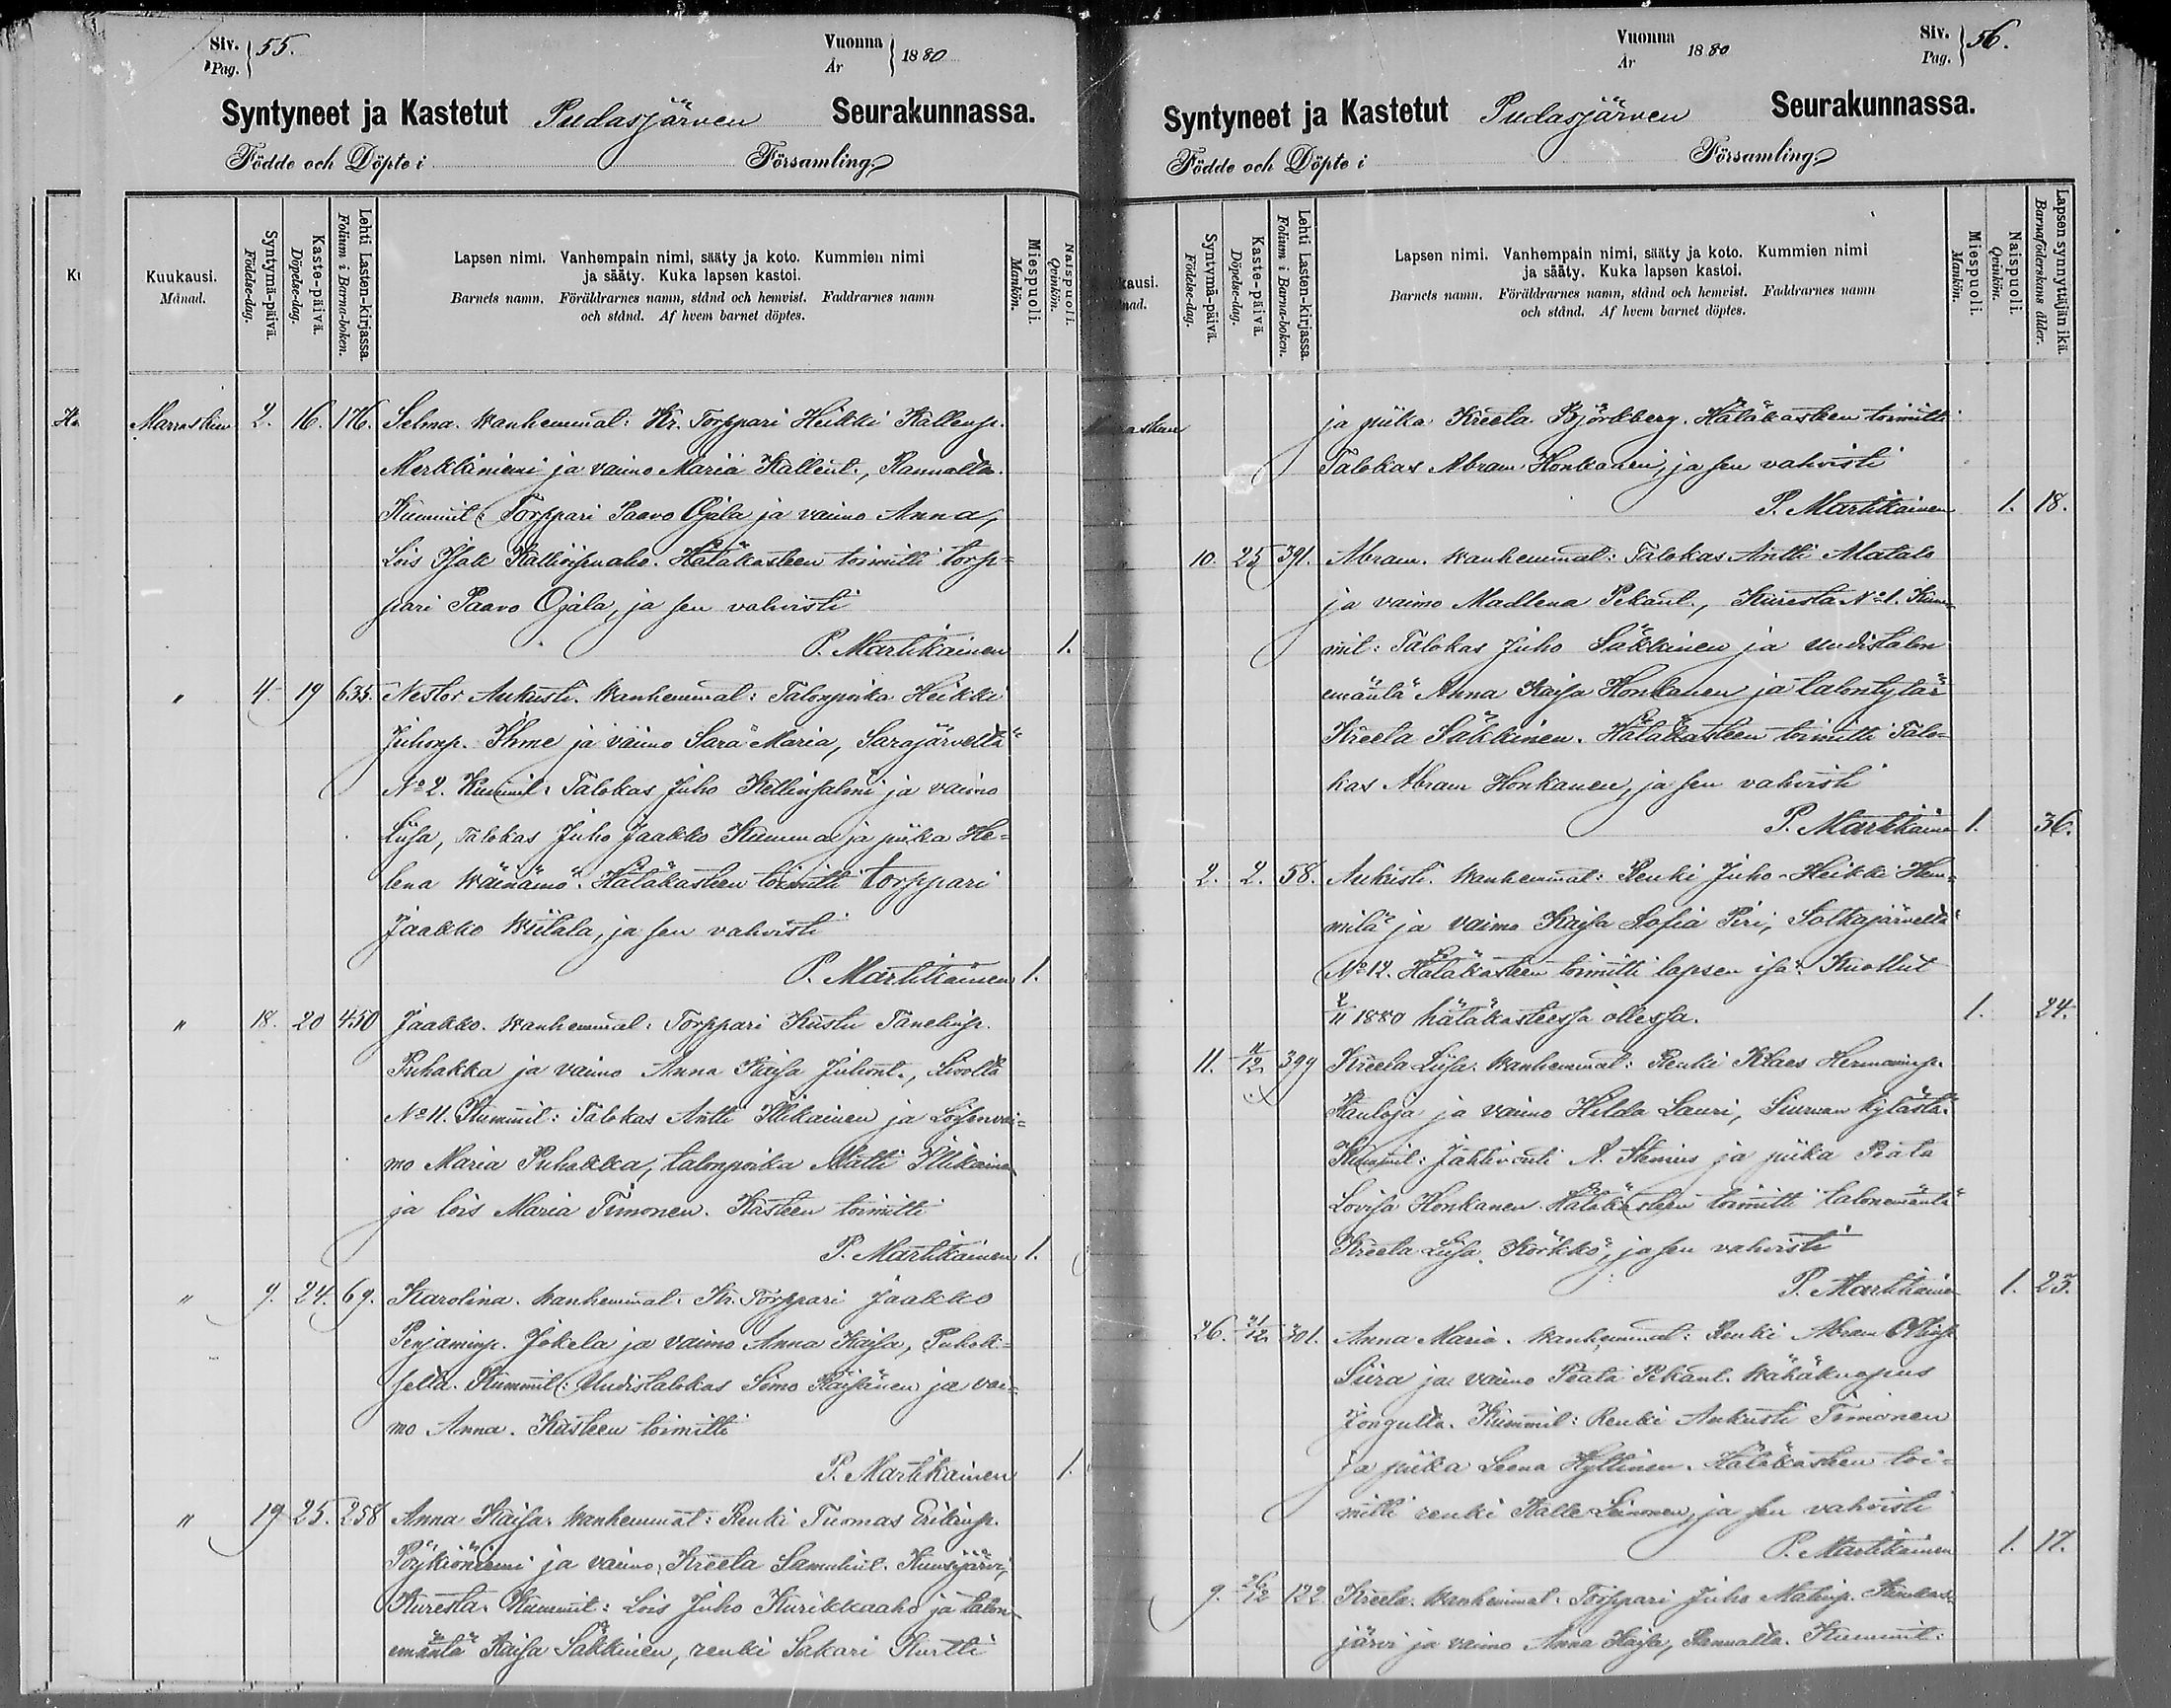 Siv. 55.
Pag.
Vuonna 1880
År
Syntyneet ja Kastetut Pudasjärven Seurakunnassa.
Födde och Döpte i Församling
Kuukausi.
Månad.
Syntymä-päivä.
Födelse-dag.
Kaste-päivä.
Döpelse-dag.
Lehti Lasten-kirjassa.
Folium i Barna-boken.
Lapsen nimi. Vanhempain nimi, sääty ja koto. Kummien nimi
ja sääty. Kuka lapsen kastoi.
Barnets namn. Föräldrarnes namn, stånd och hemvist. Faddrarnes namn
och stånd. Af hvem barnet döptes.
Miespuoli.
Mankön.
Naispuoli.
Qvinkön.
Marraskuu 2. 16. 176. Selma. Wanhemmat: Kr. Torppari Heikki Kallenp.
Merkkiniemi ja vaimo Maria Kallent., Rannalta.
Kummit: Torppari Paavo Ojala ja vaimo Anna,
Lois Isak Hätäkasteen toimitti torp=
pari Paavo Ojala, ja sen vahvisti
P. Martikainen 1.
" 4. 19 635. Nestor Aukusti. Wanhemmat: Talonpoika Heikki
Juhonp. Ihme ja vaimo Sara Maria, Sarajärveltä
No 2. Kummit: Talokas Juho Kellinsalmi ja vaimo
Liisa, Talokas Juho Jaakko Kumma ja piika He=
lena Wäinämö. Hätäkasteen toimitti torppari
Jaakko Wiitala, ja sen vahvisti
P. Martikainen 1.
" 18. 20 450 Jaakko. Wanhemmat: Torppari Kustu Tanelinp.
Puhakka ja vaimo Anna Kaisa Juhont., Livolta
No 11. Kummit: Talokas Antti Illikainen ja Loisenvai=
mo Maria Puhakka, talonpoika Matti Illikainen
ja lois Maria Timonen. Kasteen toimitti
P. Martikainen 1.
" 9. 24. 69. Karolina. Wanhemmat: Kr. Torppari Jaakko
Penjaminp. Jokela ja vaimo Anna Kaisa, Puhok=
selta. Kummit: Uudistalokas Simo Räisänen ja vai=
mo Anna. Kasteen toimitti
P. Martikainen 1.
" 19 25. 258 Anna Kaisa. Wanhemmat: Renki Tuomas Erikinp.
Pöykiöniemi ja vaimo Kreeta Samulint. Kuusijärvi,
Kuresta. Kummit: Lois Juho Kurikkaaho ja talon
emäntä Kaisa Säkkinen, renki Sakari Kurtti
Vuonna 1880
År
Siv. 56.
Pag.
Syntyneet ja Kastetut Pudasjärven Seurakunnassa.
Födde och Döpte i Församling
Syntymä-päivä.
Födelse-dag.
Kaste-päivä.
Döpelse-dag.
Lehti Lasten-kirjassa.
Folium i Barna-boken.
Lapsen nimi. Vanhempain nimi, sääty ja koto. Kummien nimi
ja sääty. Kuka lapsen kastoi.
Barnets namn. Föräldrarnes namn, stånd och hemvist. Faddrarnes namn
och stånd. Af hvem barnet döptes.
Miespuoli.
Mankön.
Naispuoli.
Qvinkön.
Lapsen synnyttäjän ikä.
Barnaföderskans ålder.
ja piika Kreeta Björkberg. Hätäkasteen toimitti
Talokas Abram Honkanen, ja sen vahvisti
P. Martikainen 1. 18.
10. 25 391. Abram. Wanhemmat: Talokas Antti Alatalo
ja vaimo Madlena Pekant., Kuresta No 1. Kum=
mit: Talokas Juho Säkkinen ja uudistalon
emäntä Anna Kaisa Honkanen ja talontytär
Kreeta Säkkinen. Hätäkasteen toimitti Talo=
kas Abram Honkanen, ja sen vahvisti
P. Martikainen 1. 36.
2. 2. 58. Aukusti. Wanhemmat: Renki Juho Heikki Hem=
milä ja vaimo Kaisa Sofia Piri, Sotkajärveltä
No 12. Hätäkasteen toimitti lapsen isä. Kuollut
2/11 1880 hätäkasteessa ollessa. 1. 24.
11. 4/12 399 Kreeta Liisa. Wanhemmat: Renki Klaes Hermanninp.
Kauloja ja vaimo Hilda Lauri, Siuruan kylästä.
Kummit: Jahtivouti A. Stenius ja piika Peata
Lovisa Honkanen. Hätäkasteen toimitti talonemäntä
Kreeta Liisa Körkkö, ja sen vahvisti
P. Martikainen 1. 25.
26. 21/12 301. Anna Maria. Wanhemmat: Renki Abram Ollinp.
Siira ja vaimo Peata Pekant. Wähäkuopus
Jongulta. Kummit: Renki Aukusti Timonen
ja piika Leena Hyttinen. Hätäkasteen toi=
mitti renki Kalle Leinonen, ja sen vahvisti
P. Martikainen 1. 17.
9. 26/12 122 Kreeta. Wanhemmat: Torppari Juho Matinp.
järvi ja vaimo Anna Kaisa, Rannalta. Kummit: